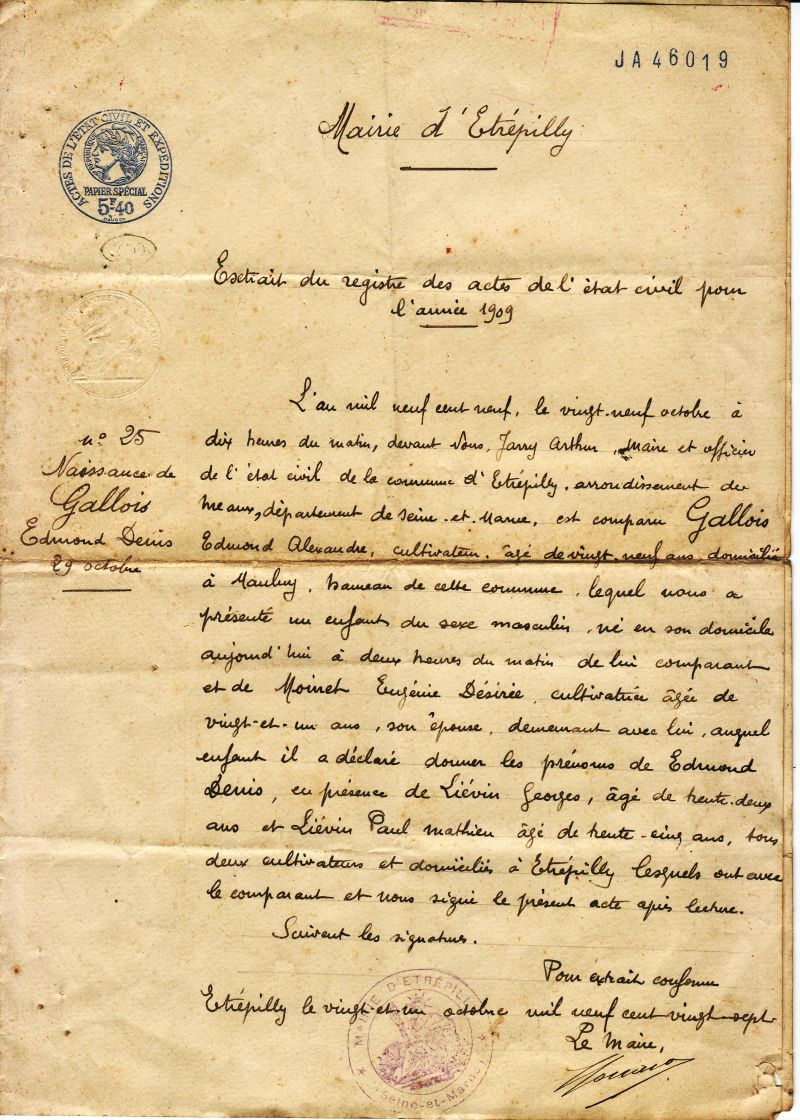 JA46019
Mairie d'Etrépilly
ACTES DE L'ETAT CIVIL ET EXPEDITIONS
PAPIER SPÉCIAL
5F40
Extrait du registre des actes de l'état civil pour
l'année 1909
n° 25
Naissance de
Gallois
Edmond Denis
29 octobre
L'an mil neuf cent neuf, le vingt-neuf octobre à
dix heures du matin, devant Nous, Jarry Arthur, Maire et officier
de l'état civil de la commune d'Etrépilly, arrondissement de
Meaux, département de Seine-et-Marne, est comparu Gallois
Edmond Alexandre, cultivateur, âgé de vingt-neuf ans, domicilié
à , hameau de cette commune, lequel nous a
présenté un enfant du sexe masculin, né en son domicile
aujourd'hui à deux heures du matin de lui comparant
et de Moinet Eugénie Désirée, cultivatrice âgée de
vingt-et-un ans, son épouse, demeurant avec lui, auquel
enfant il a déclaré donner les prénoms de Edmond
Denis, en présence de Liévin Georges, âgé de trente-deux
ans et Liévin Paul Mathieu âgé de trente-cinq ans, tous
deux cultivateurs et domiciliés à Etrépilly lesquels ont avec
le comparant et nous signé le présent acte après lecture.
Suivent les signatures.
Pour extrait conforme
Etrépilly le vingt-et-un octobre mil neuf cent vingt-sept
Le Maire,
MAIRIE D'ETRÉPILLY
(Seine-et-Marne)